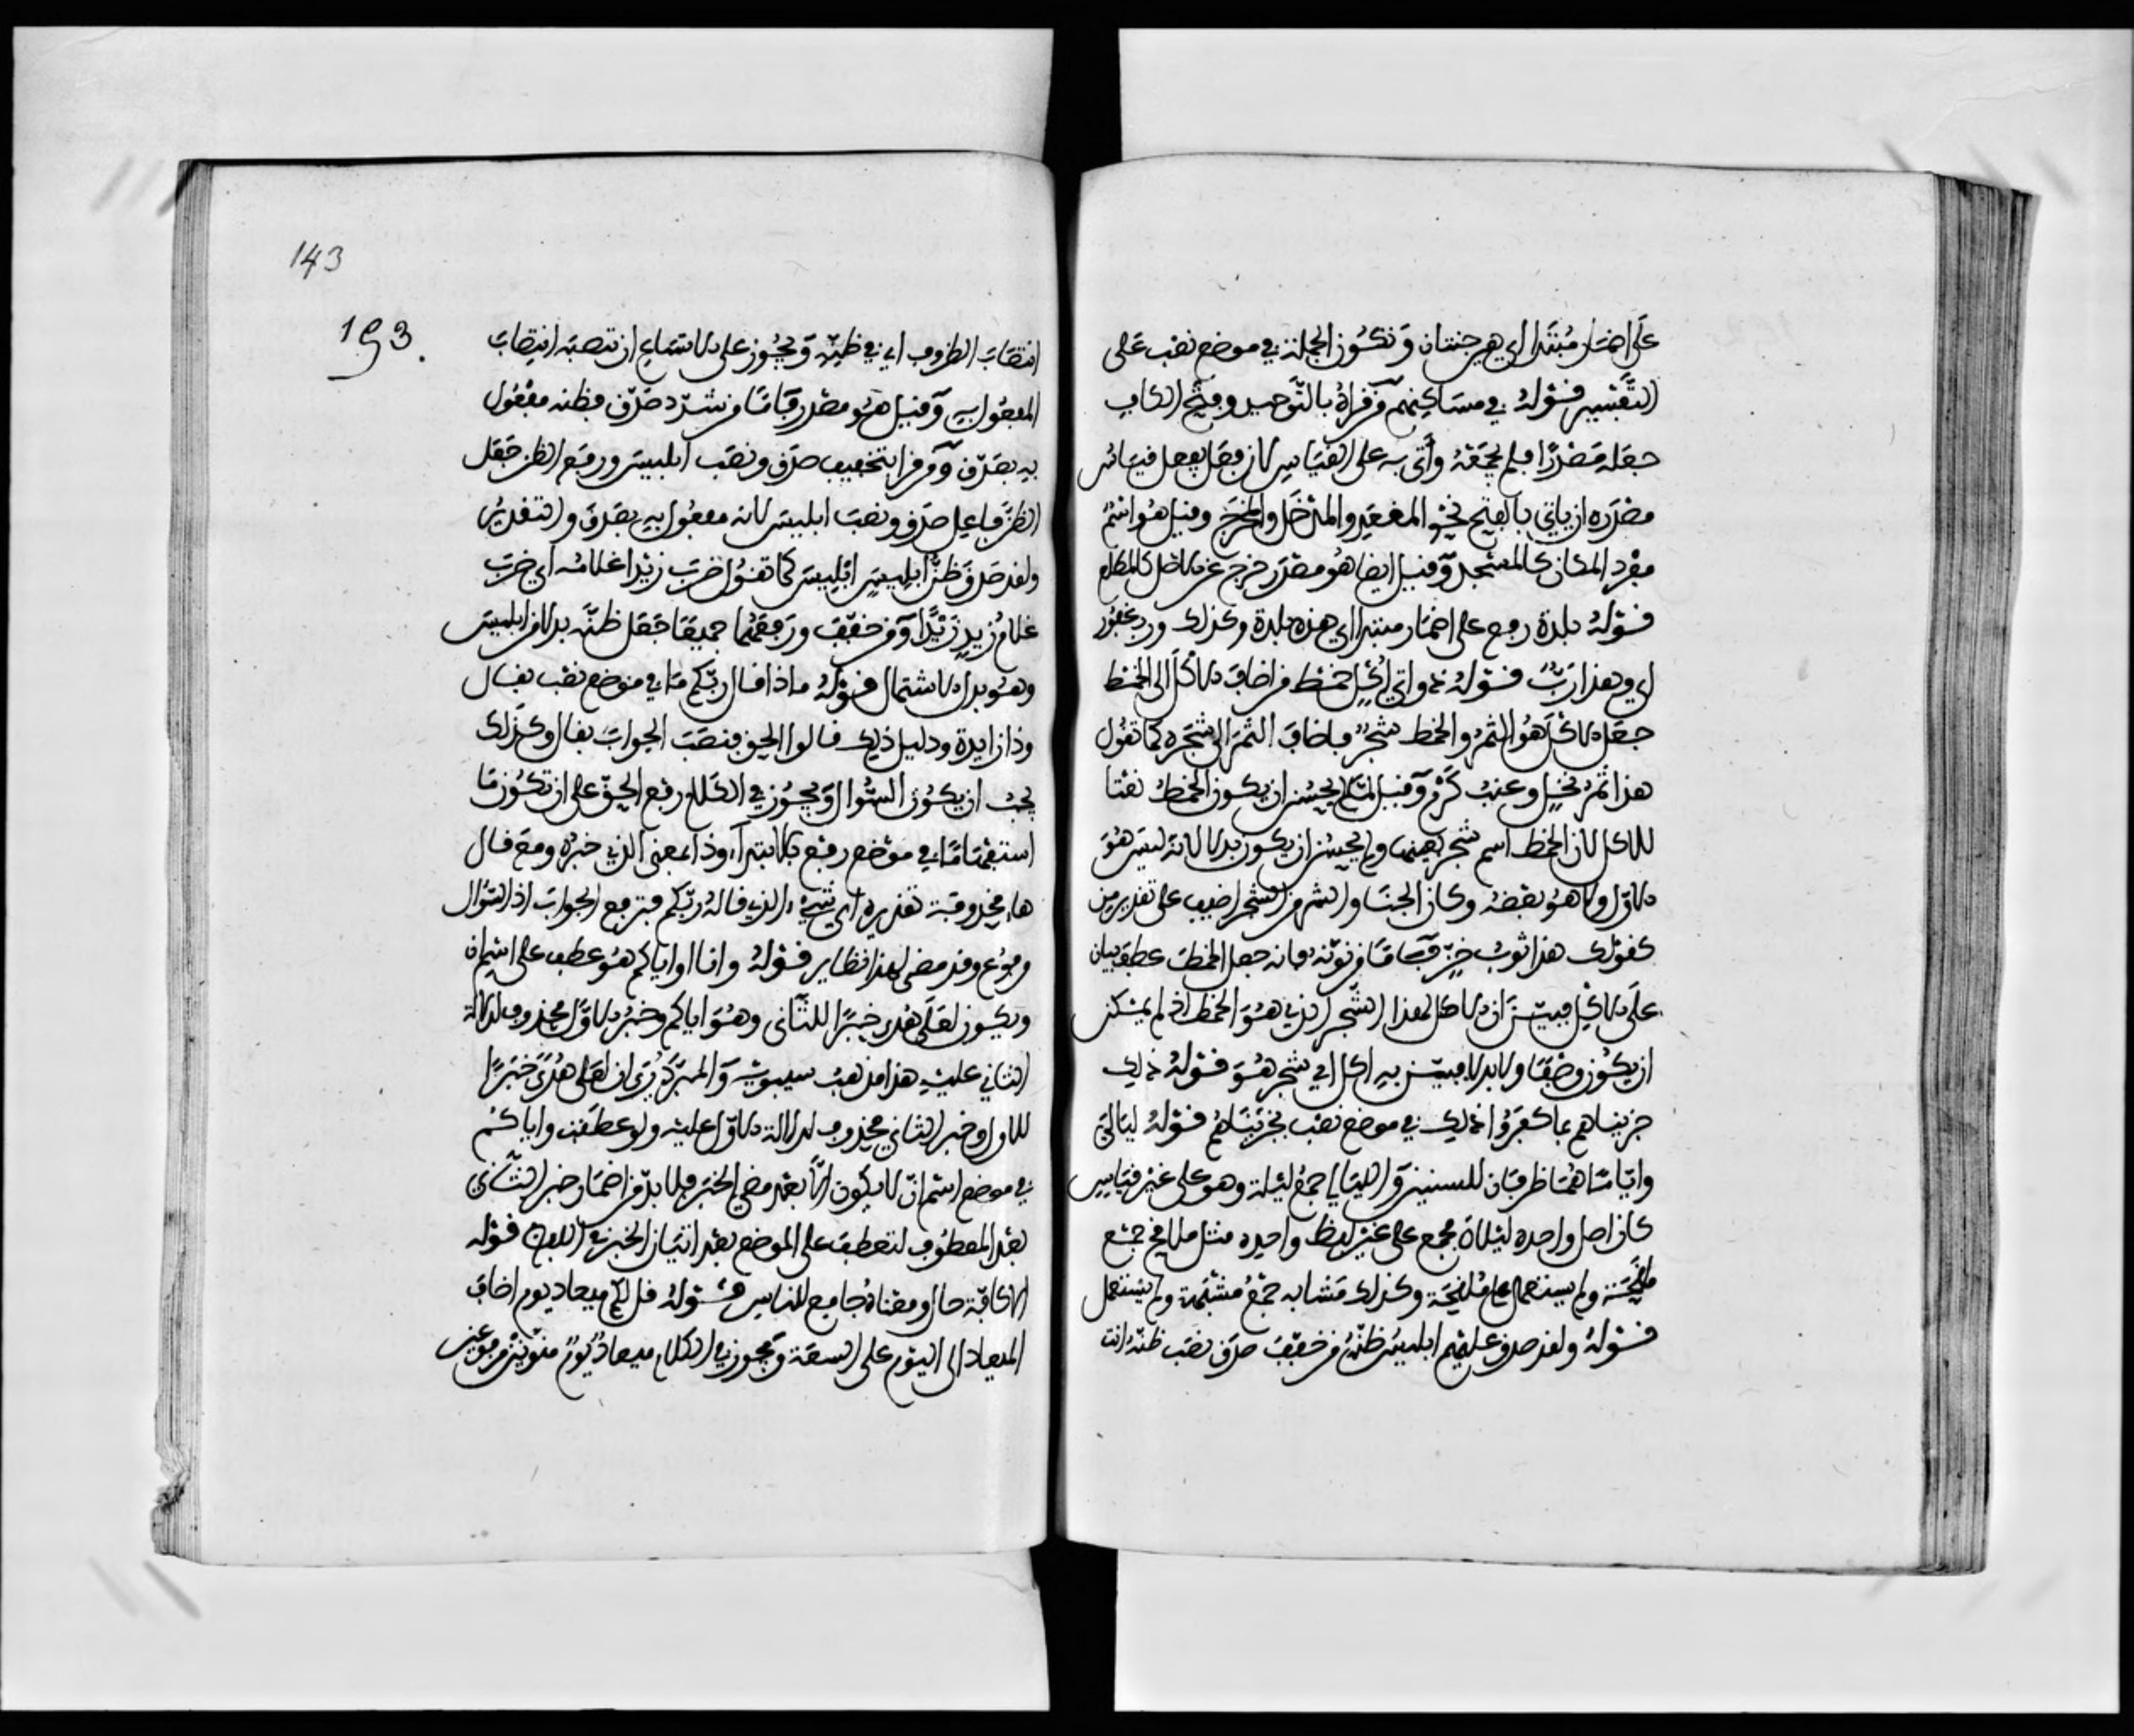 على اضمار مبتدا اي هي جنتان وتكون الجملة في موضع نصب على
التفسير قوله في مساكنهم من قراه بالتوحيد وفتح الكاف
جعله مصدرا فلم يجمعه وأتى به على القياس لان فعل يفعل قياس
مصدره ان ياتي بالفتح نحو المقعد والمدخل والمخرج وقيل هو اسم
مفرد للمكان كالمسجد وقيل ايضا هو مصدر خرج عن الاصل كالمطلع
قوله بلدة رفع على اضمار مبتدا اي هذه بلدة وكذلك ورب غفور
اي وهذا رب قوله ذواتي اكل خمط من اضاف الاكل الى الخمط
جعل الاكل هو الثمر والخمط شجر فاضاف الثمر الى شجره كما تقول
هذا ثمر نخل وعنب كرم وقيل لما لم يحسن ان يكون الخمط نعتا
للاكل لان الخمط اسم شجر بعينها ولم يحسن ان يكون بدلا لانه ليس هو
الاول ولا هو بعضه وكان الجنا والثمر من الشجر اضيف على تقدير من
كقولك هذا ثوب خز فاما من نونه فانه جعل الخمط عطف بيان
على الاكل فبين ان الاكل لهذا الشجر الذي هو الخمط اذ لم يمكن
ان يكون وصفا ولا بدلا فبين به اكل اي شجر هو قوله ذلك
جزيناهم بما كفروا ذلك في موضع نصب بجزيناهم قوله ليالي
واياما هما ظرفان للسير والليالي جمع ليلة وهو على غير قياس
كان اصل واحده ليلاة فجمع على غير لفظ واحده مثل ملاقح جمع
ملقحة ولم يستعمل ملقحة وكذلك مشابه جمع مشبهة ولم يستعمل
قوله ولقد صدق عليهم ابليس ظنه من خفف صدق نصب ظنه انت
143
193
انتصاب الظروف اي في ظنه ويجوز على الاتساع ان تنصبه انتصاب
المفعول به وقيل هو مصدر فاما من شدد صدق فظنه مفعول
به بصدق ومن قرا بتخفيف صدق ونصب ابليس ورفع الظن جعل
الظن فاعل صدق ونصب ابليس لانه مفعول به بصدق والتقدير
ولقد صدق ظن ابليس ابليس كما تقول ضرب زيدا غلامه اي ضرب
غلام زيد زيدا ومن خفف ورفعهما جميعا جعل ظنه بدلا من ابليس
وهو بدل الاشتمال قوله ماذا قال ربكم ما في موضع نصب بقال
وذا زايدة ودليل ذلك قالوا الحق فنصب الجواب بقال وكذلك
يجب ان يكون السوال ويجوز في الكلام رفع الحق على ان تكون ما
استفهاما في موضع رفع بالابتدآء وذا بمعنى الذي خبره ومع قال
هاء محذوفة تقديره اي شيء الذي قاله ربكم فترفع الجواب اذ السوال
مرفوع وقد مضى لهذا نظاير قوله وانا او اياكم هو عطف على اسم ان
ويكون لعلى هدى خبرا للثاني وهو اياكم وخبر الاول محذوف لدلالة
الثاني عليه هذا مذهب سيبويه والمبرد يرى ان لعلى هدى خبرا
للاول وخبر الثاني محذوف لدلالة الاول عليه ولو عطفت واياكم
في موضع اسم ان لا يكون الا بعد مضي الخبر فلا بد من اضمار خبر الثاني
بعد المعطوف لتعطف على الموضع بعد اتيان الخبر في اللفظ قوله
الا كافة حال ومعناه جامع للناس قوله قل لكم ميعاد يوم اضاف
الميعاد الى اليوم على السعة ويجوز في الكلام ميعاد يوم منونين مرفوعين